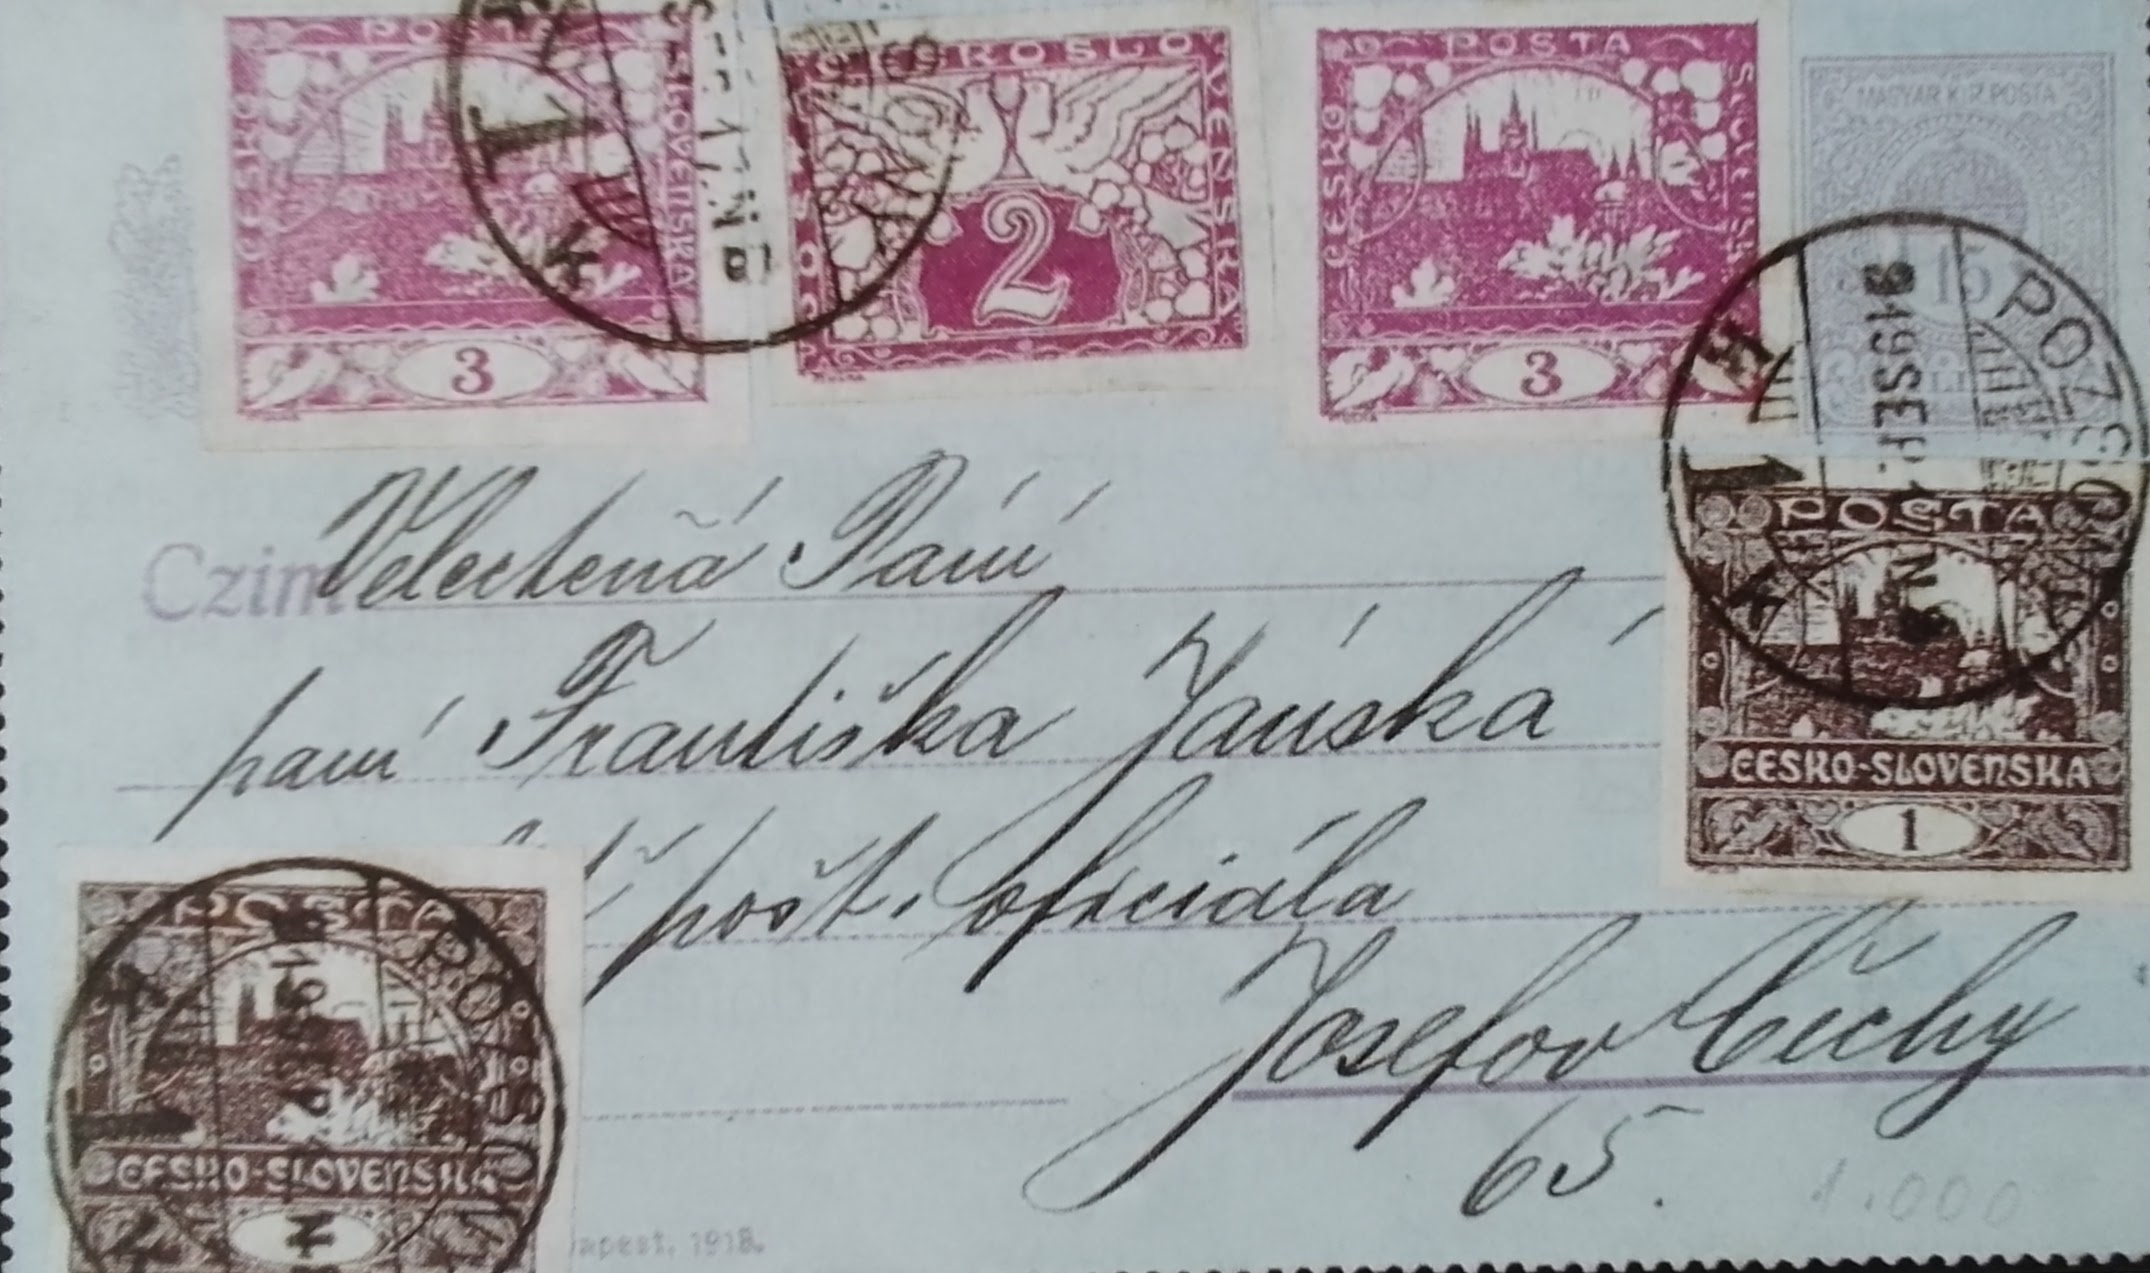 POSTA
ČESKO
SLOVENSKA
3
ČESKOSLOVENSKA
2
POSTA
ČESKO
SLOVENSKA
3
MAGYAR KIR. POSTA
15
POZSONY
919 SEP.
POSTA
ČESKO-SLOVENSKA
1
Velectěná Paní
paní Františka Jánská
pošt. oficiála
Josefov Čechy
65.
1.000
POSTA
ČESKO-SLOVENSKA
POZSONY
Czim
apest, 1918.